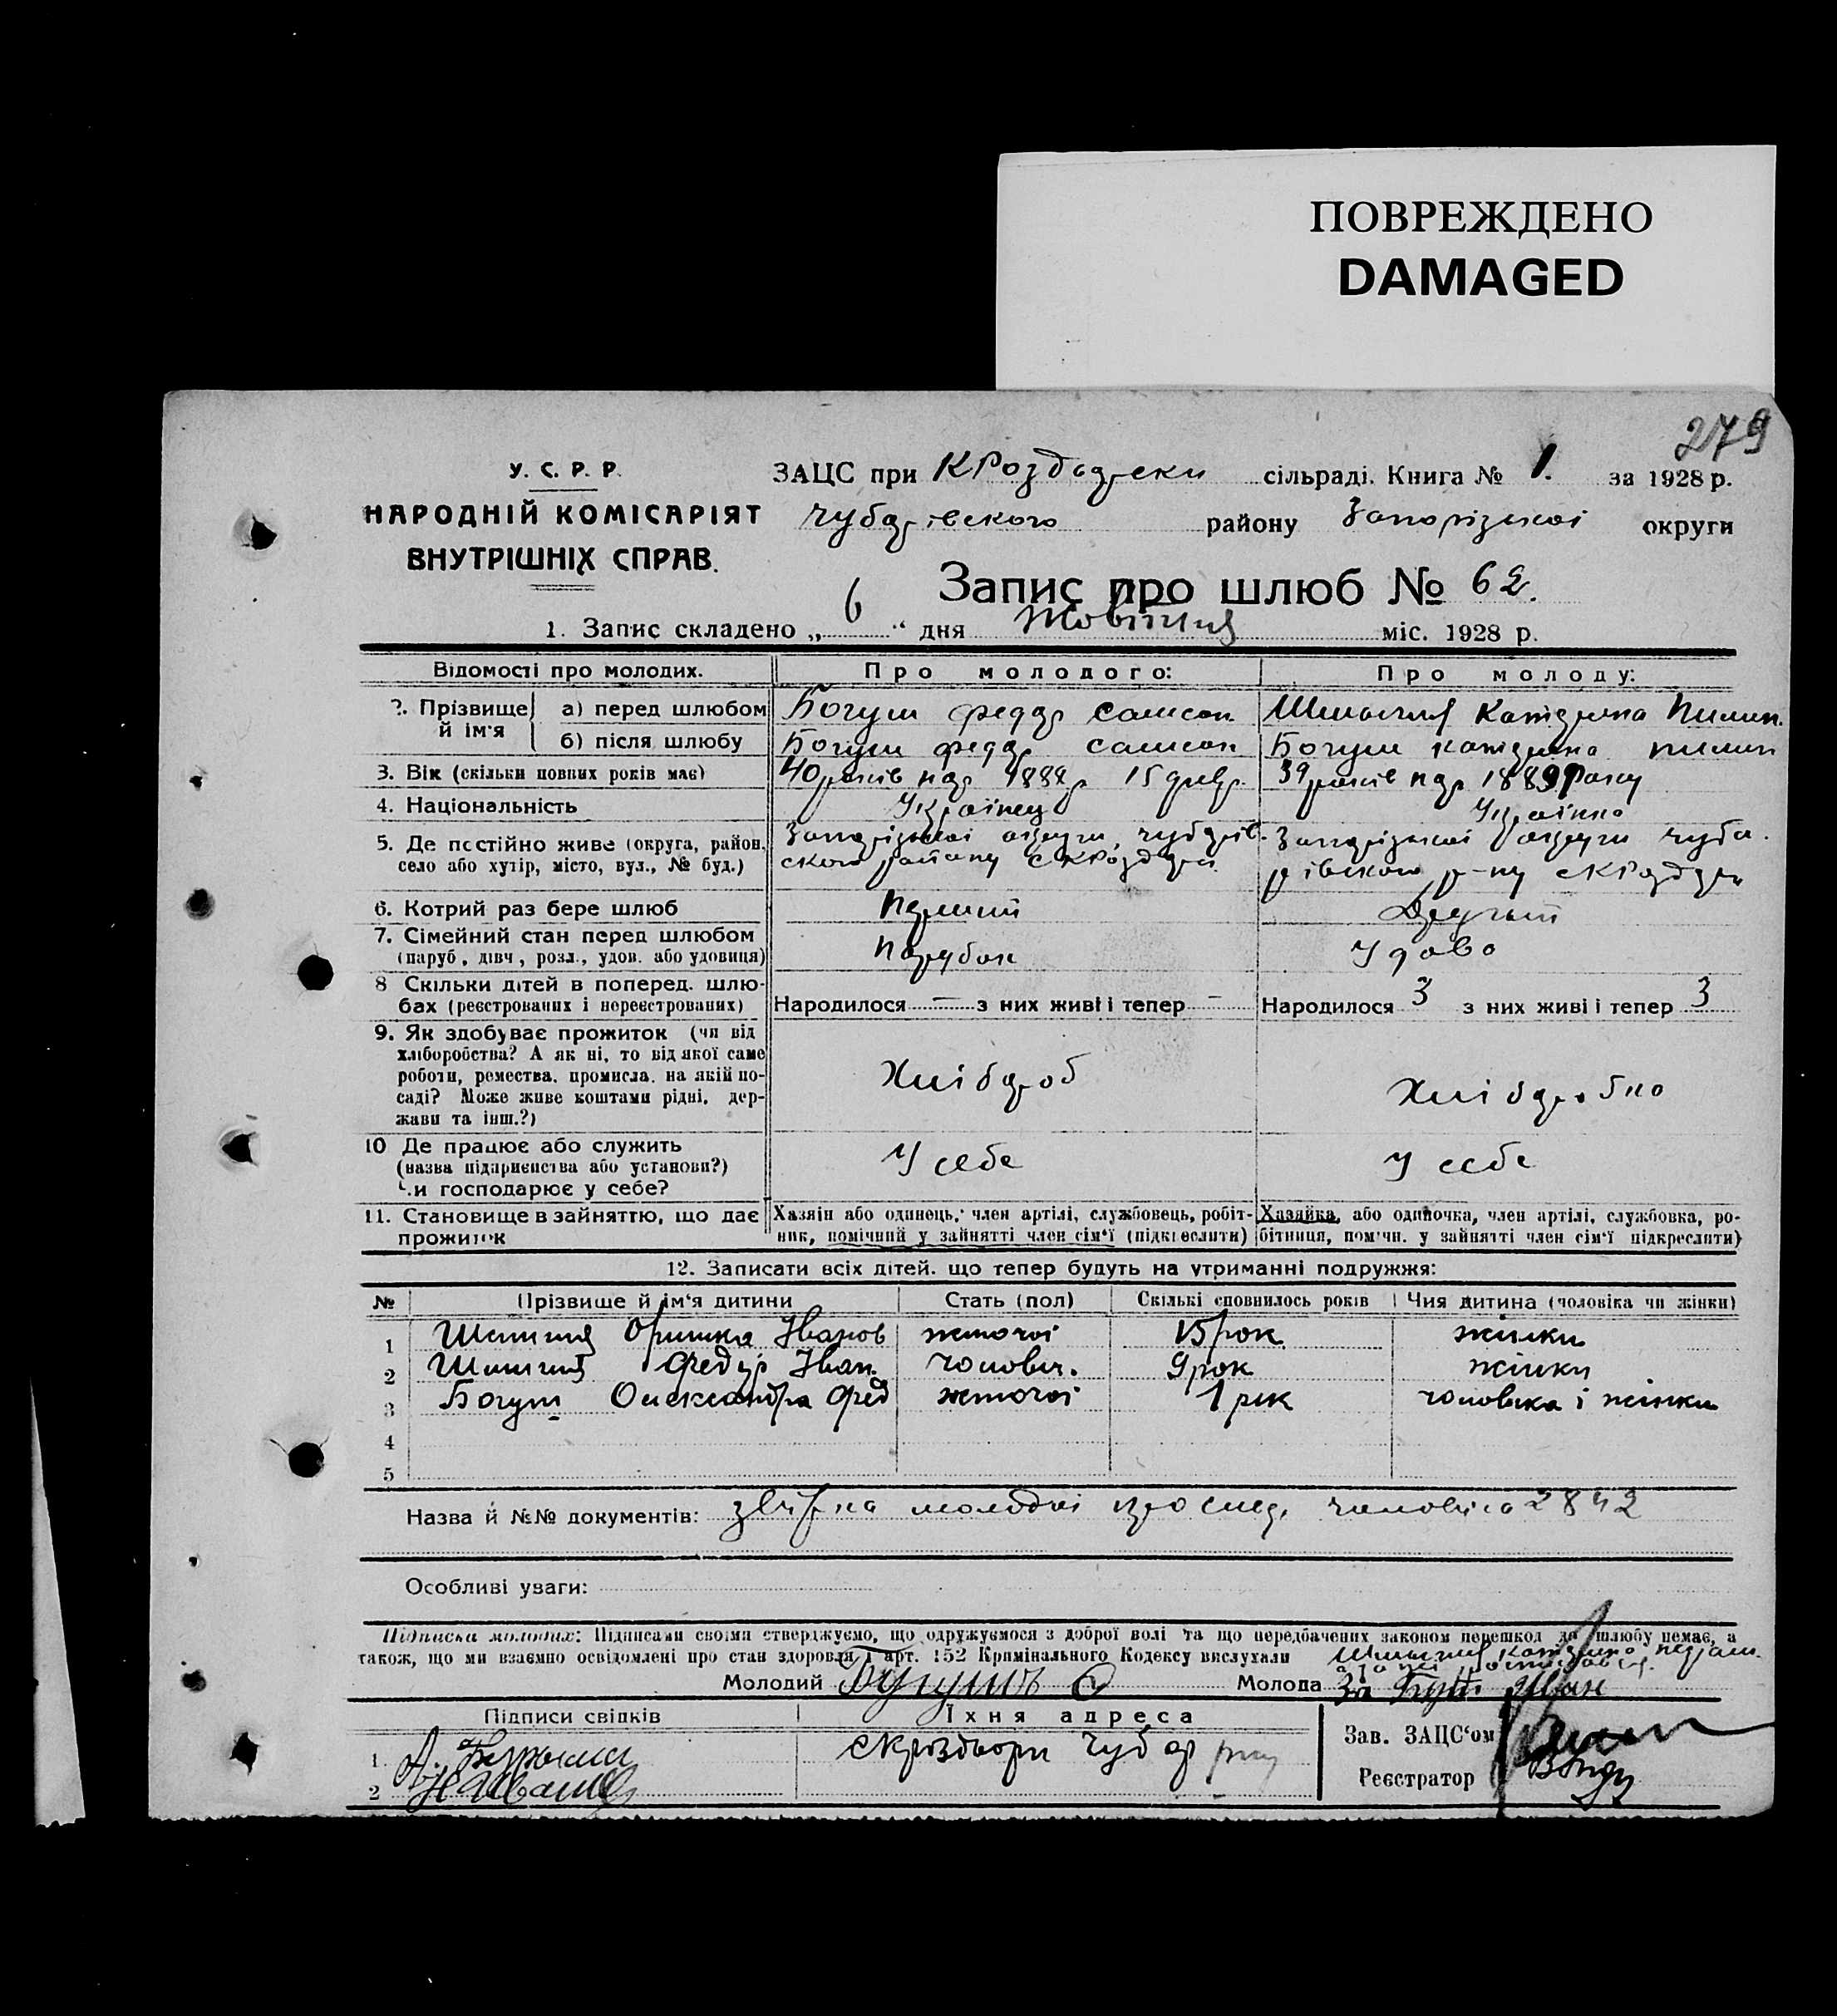 ПОВРЕЖДЕНО
DAMAGED
279
У. С. Р. Р.
НАРОДНІЙ КОМІСАРІЯТ
ВНУТРІШНІХ СПРАВ.
ЗАЦС при сільраді. Книга № 1. за 1928 р.
району Запорізької округи
Запис про шлюб № 62.
1. Запис складено „ 6 “ дня Жовтня міс. 1928 р.
Відомості про молодих. Про молодого: Про молоду:
2. Прізвище й ім'я а) перед шлюбом Богуш Федор Самсон Катерина Пилип.
б) після шлюбу Богуш Федор Самсон Богуш Катерина Пилип
3. Вік (скільки повних років має) 40 років 1888 р 15 39 років 1889 року
4. Національність Українец Українка
5. Де постійно живе (округа, район, село або хутір, місто, вул., № буд.) Запорізької округи Запорізької округи
6. Котрий раз бере шлюб Первий Другий
7. Сімейний стан перед шлюбом (паруб., дівч., розл., удов. або удовиця) Парубок Удова
8 Скільки дітей в поперед. шлюбах (реєстрованих і нереєстрованих) Народилося — з них живі і тепер — Народилося 3 з них живі і тепер 3
9. Як здобуває прожиток (чи від хліборобства? А як ні, то від якої саме роботи, ремества, промисла, на якій посаді? Може живе коштами рідні, держави та інш.?) Хлібороб Хліборобка
10 Де працює або служить (назва підприємства або установи?) Чи господарює у себе? У себе У себе
11. Становище в зайняттю, що дає прожиток Хазяїн або одинець, член артілі, службовець, робітник, помічний у зайнятті член сім'ї (підкреслити) Хазяйка, або одиночка, член артілі, службовка, робітниця, поміч. у зайнятті член сім'ї підкреслити)
12. Записати всіх дітей, що тепер будуть на утриманні подружжя:
№ Прізвище й ім'я дитини Стать (пол) Скількі сповнилось років Чия дитина (чоловіка чи жінки)
1 Оришка Иванов жіночої 15 рок. жінки
2 Федор Иван. чоловіч. 9 рок жінки
3 Богуш Олександра Фед жіночої 1 рік чоловіка і жінки
4
5
Назва й №№ документів: молодої 2842
Особливі уваги:
Підписка молодих: Підписами своїми стверджуємо, що одружуємося з доброї волі та що передбачених законом перешкод до шлюбу немає, а
також, що ми взаємно освідомлені про стан здоровля і арт. 152 Кримінального Кодексу вислухали
Молодий Молода
Підписи свідків Їхня адреса
1.
2
Зав. ЗАЦС'ом
Реєстратор